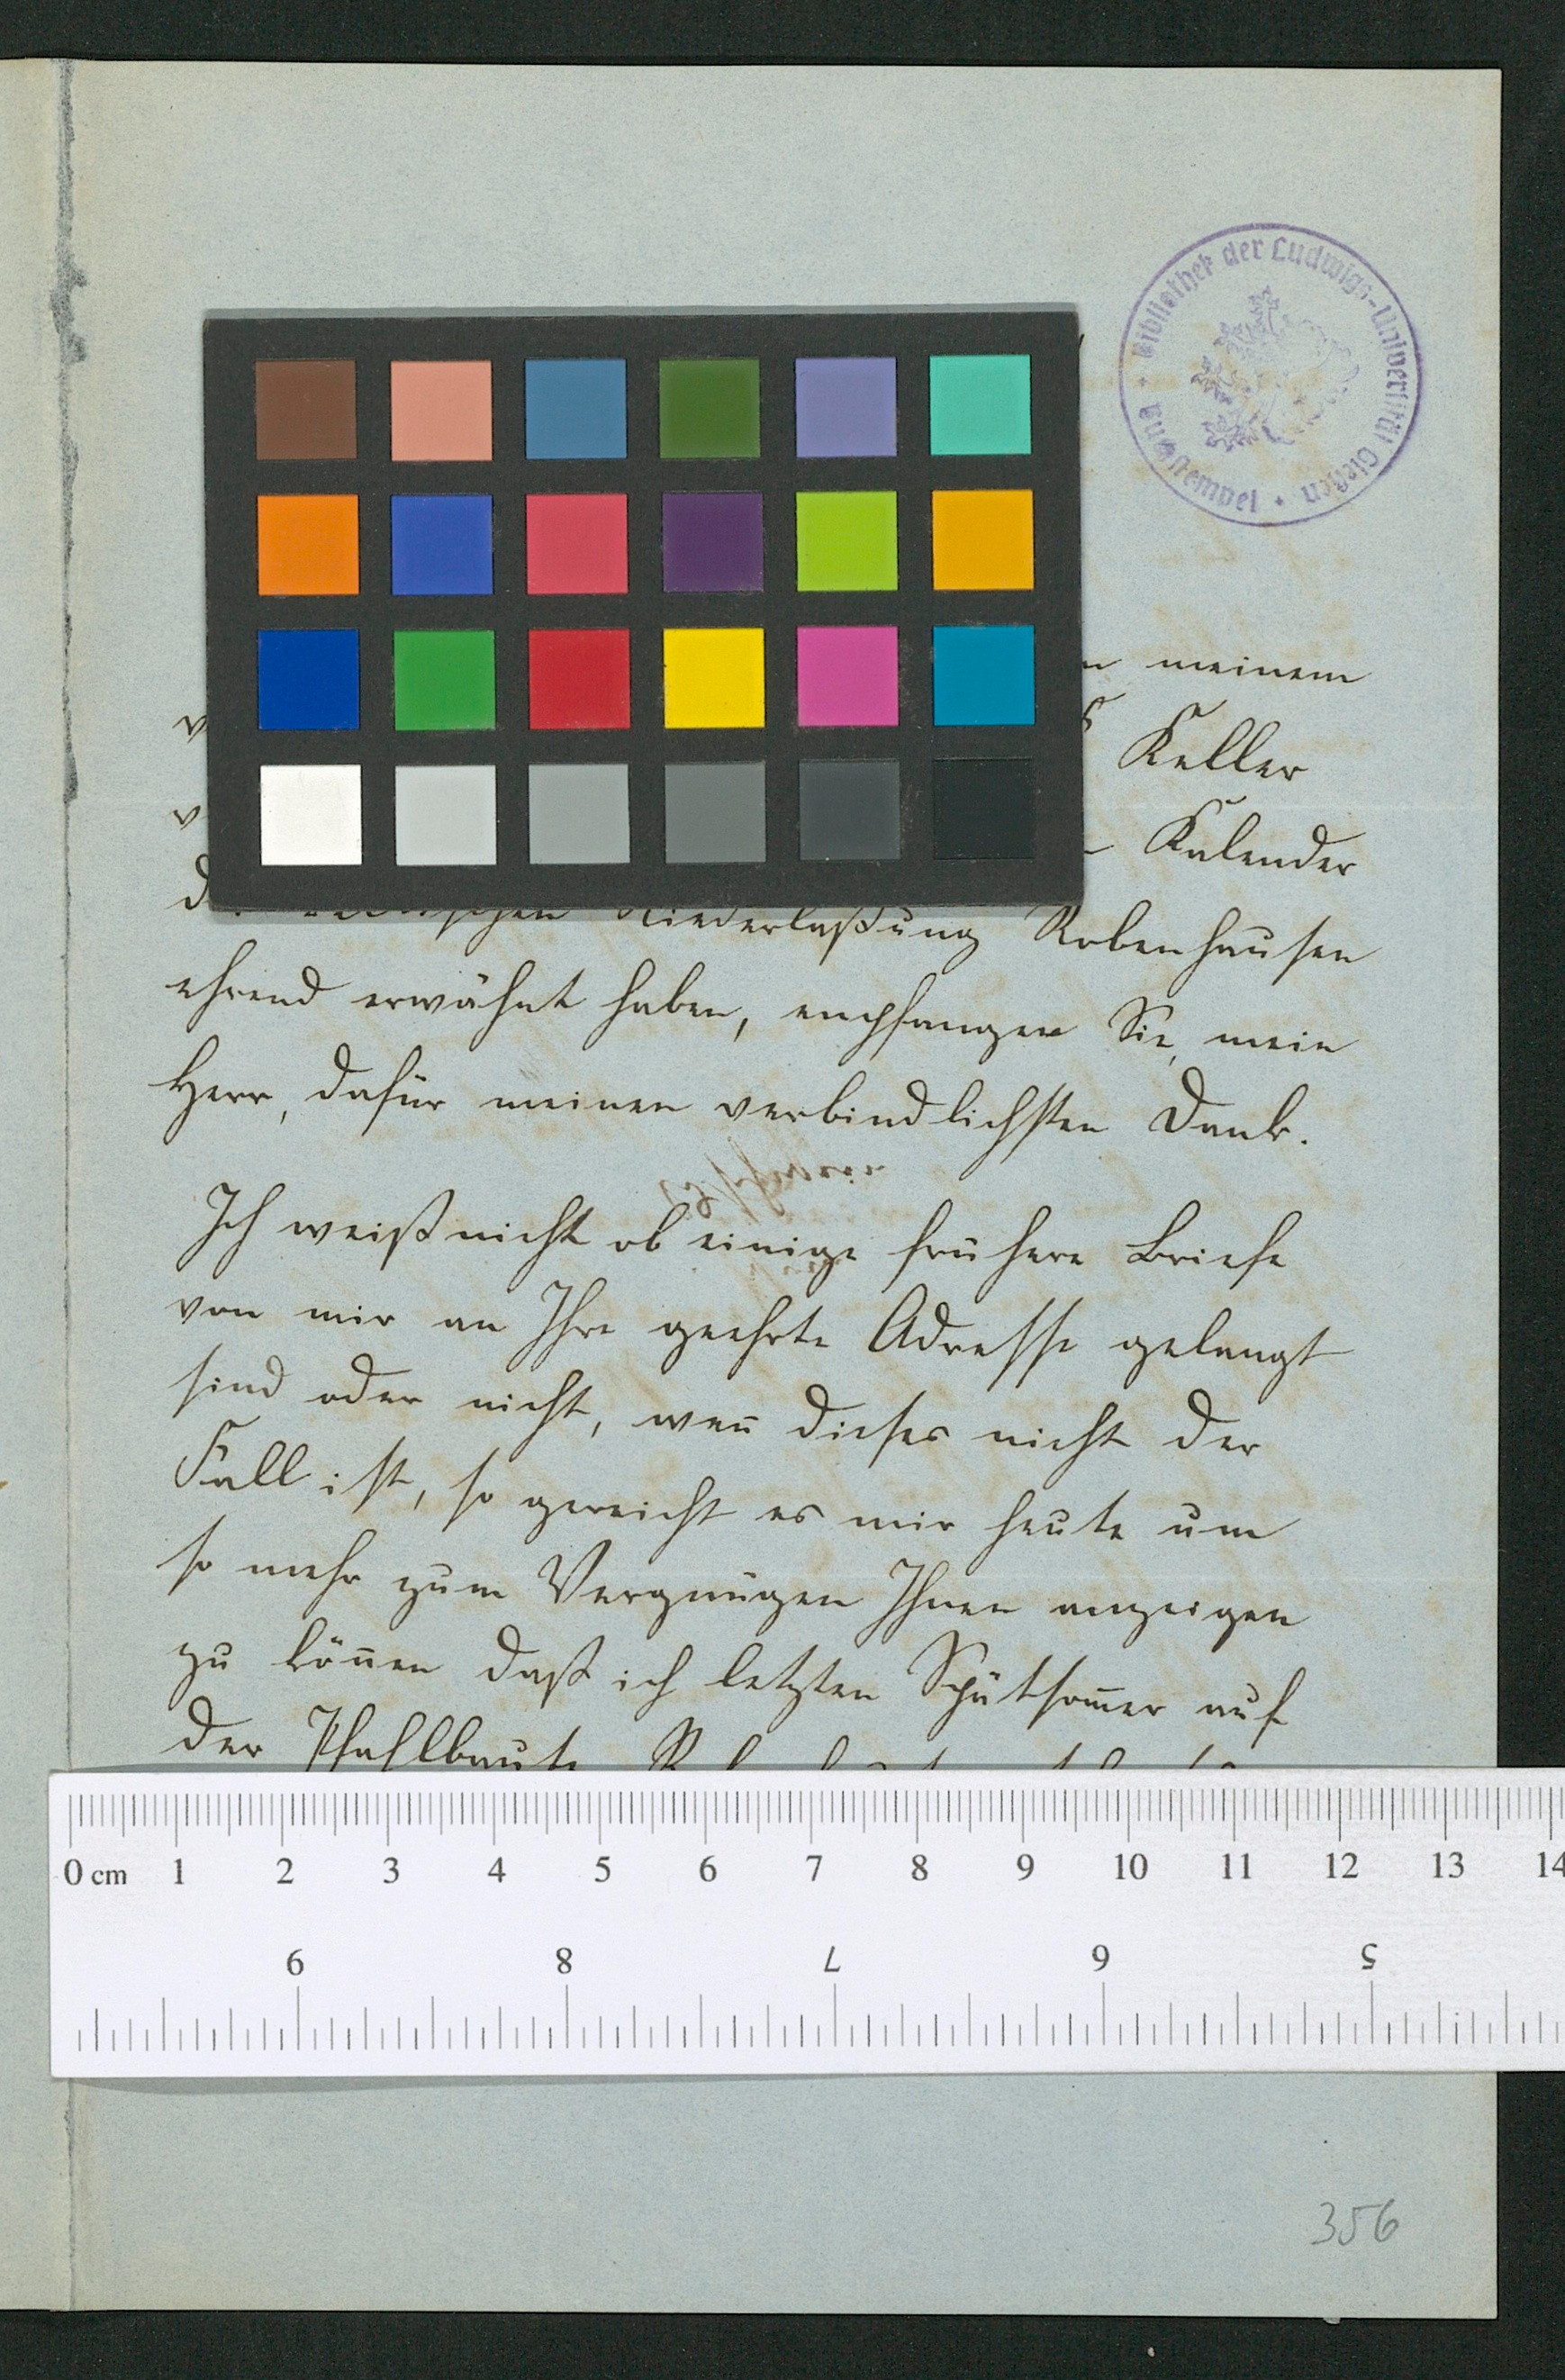 Bibliothek der Ludwigs-Universität Giessen
meinem
Keller
Kalender
Niederlaßung Robenhausen
ehrend erwähnt haben, empfangen Sie, mein
Herr, dafür meinen verbindlichsten Dank.
Ich weiß nicht ob einige frühere Briefe
von mir an Ihre geehrte Adresse gelangt
sind oder nicht, wen̄ dieses nicht der
Fall ist, so gereicht es mir heute um
so mehr zum Vergnügen Ihnen anzeigen
zu kön̄en daß ich letzten Spätsom̄er auf
der Pfahlbaute
0 cm 1 2 3 4 5 6 7 8 9 10 11 12 13 14
9 8 7 6 5
356